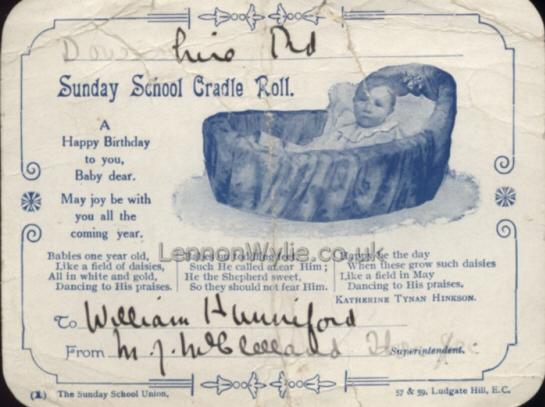 Sunday School Cradle Roll.
A
Happy Birthday
to you,
Baby dear.
May joy be with
you all the
coming year.
Babies one year old,
Like a field of daisies,
All in white and gold,
Dancing to His praises.
Babies on toddling feet
Such He called anear Him;
He the Shepherd sweet,
So they should not fear Him.
Happy be the day
When these grow such daisies
Like a field in May
Dancing to His praises.
KATHERINE TYNAN HINKSON.
LennonWylie.co.uk
To William Hunniford
From M. J. McClelland Superintendent.
(1) The Sunday School Union, 57 & 59, Ludgate Hill, E.C.